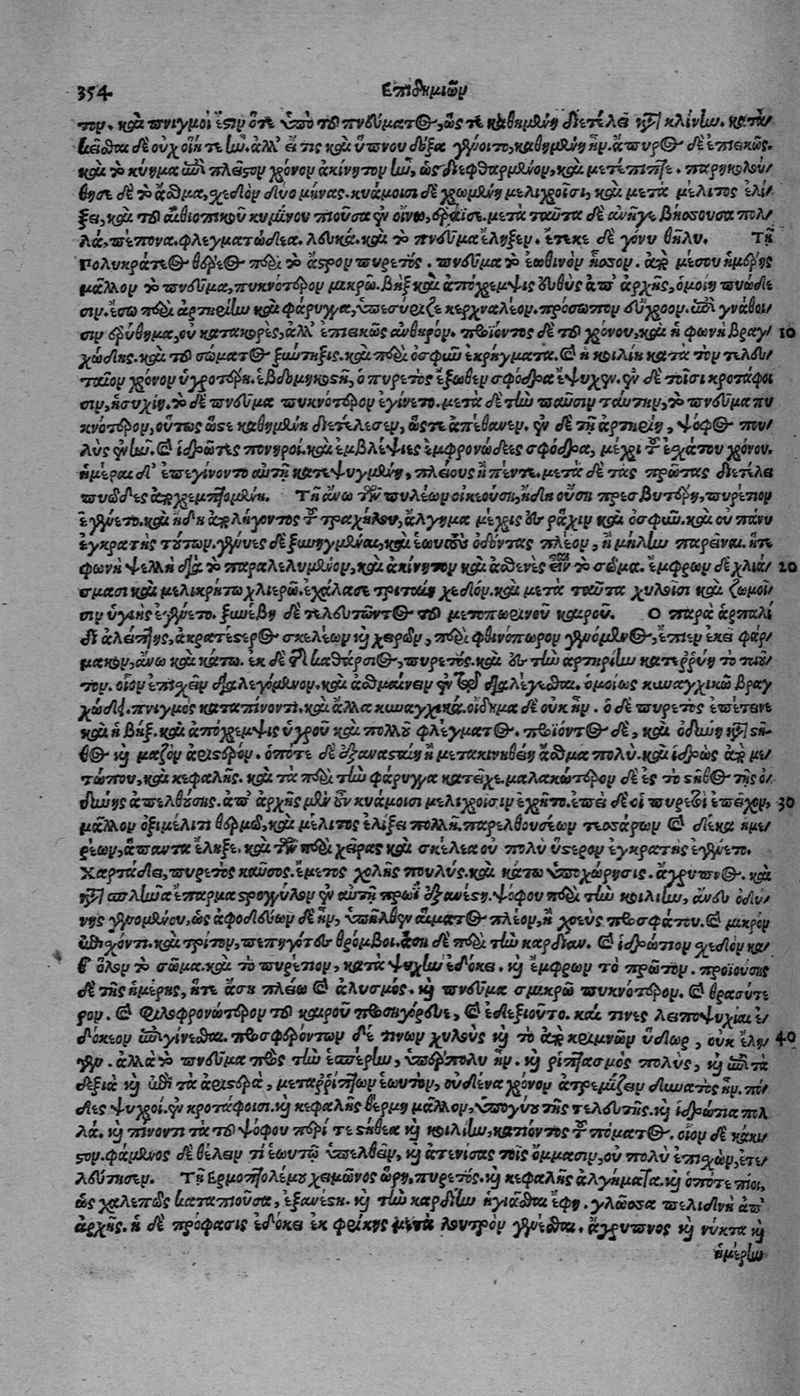 354 Επιδημιῶν
τον. καὶ πνιγμοί ἐςιν ὅτε ὑπὸ τοῦ πνεύματος, ὥς τε καθημένη διετέλει ἐπὶ κλίνην. κατα/
κεῖσθαι δὲ οὐχ οἵη τε ἦν. ἀλλ' εἴ τις καὶ ὕπνου δόξα γένοιτο, καθημένη ἦν. ἄπυρος δὲ ἐπιεικῶς.
καὶ τὸ κύημα ἐπὶ πλεῖςον χρόνον ἀκίνητον ἦν, ὡς διεφθαρμένον, καὶ μετέπιπτε. παρηκολού/
θησε δὲ τὸ ἆσθμα, χεδὸν δύο μῆνας. κυάμοισι δὲ χρωμένη μελιχροῖσι, καὶ μετὰ μέλιτος ἐλί/
ξει, καὶ τοῦ αἰθιοπικοῦ κυμίνου πιοῦσα ἐν οἴνῳ, ἐρράϊσε. μετὰ ταῦτα δὲ ἀνῆγε βήσσουσα πολ/
λὰ, πέπονα. φλεγματώδεα. λευκά. καὶ τὸ πνεῦμα ἔληξεν. ἔτεκε δὲ γόνυ θῆλυ. Τῇ
Πολυκράτεος θέρεος περὶ τὸ ἄςρον πυρετὸς. πνεῦμα τὸ ἑωθινὸν ἧσσον. ἀπὸ μέσου ἡμέρης
μᾶλλον τὸ πνεῦμα, πυκνότερον μικρῷ. βὴξ καὶ ἀπόχεμψις εὐθὺς ἀπ' ἀρχῆς, ὁμοίη πυώδε
σιν. ἔσω περὶ ἀρτηρίην καὶ φάρυγγα, ὑπεσύριζε κερχναλέον. πρόσωπον εὔχροον. ἐπὶ γνάθοι/
σιν ἐρύθημα, οὐ κατακορὲς, ἀλλ' ἐπιεικῶς ἀνθηρόν. προϊόντος δὲ τοῦ χρόνου, καὶ ἡ φωνὴ βραγ/ 10
χώδης. καὶ τοῦ σώματος ξύντηξις. καὶ περὶ ὀσφῦν ἐκρήγματα. καὶ ἡ κοιλίη κατὰ τὸν τελευ/
ταῖον χρόνον ὑγροτέρη. ἑβδομηκοςῇ, ὁ πυρετὸς ἔξωθεν σφόδρα ἔψυχεν. ἐν δὲ τοῖσι κροτάφοι
σιν, ἡσυχίη. τὸ δὲ πνεῦμα πυκνότερον ἐγίνετο. μετὰ δὲ τὴν παῦσιν ταύτην, τὸ πνεῦμα πυ
κνότερον, οὕτως ὥςε καθημένη διετέλεσεν, ὥςτε ἀπέθανεν. ἐν δὲ τῇ ἀρτηρίῃ, ψόφος που/
λὺς ἐνῆν. καὶ ἱδρῶτες πονηροί. καὶ ἐμβλέψιες ἐμφρονώδεες σφόδρα, μέχρι τοῦ ἐχάτου χρόνου.
ἡμέραι δ' ἐπεγίνοντο αὐτῇ κατεψυγμένῃ, πλείους ἢ πέντε. μετὰ δὲ τὰς πρώτας διετέλει
πυώδεες ἀποχεμπτομένη. Τῇ ἄνω τῶν πυλέων οἰκεούσῃ, ἤδη οὔσῃ πρεσβυτέρῃ, πυρέτιον
ἐγένετο. καὶ ἤδη ἀπολήγοντος τοῦ τραχήλου, ἄλγημα μέχρις ἐς ῥάχιν καὶ ὀσφῦν. καὶ οὐ πάνυ
ἐγκρατὴς τούτων. γένυες δὲ ξυνηγμέναι, καὶ ἐωυτοῦ ὀδόντας πλέον, ἢ μήλην παρεῖναι. ἥτε
φωνὴ ψελλὴ διὰ τὸ παραλελυμένον, καὶ ἀκίνητον καὶ ἀσθενὲς εἶναι τὸ σῶμα. ἔμφρων δὲ χλιά/ 20
σμασι καὶ μελικρήτῳ χλιερῷ. ἐχάλασε τριταίη χεδόν. καὶ μετὰ ταῦτα χυλοῖσι καὶ ζωμοῖ/
σιν ὑγιὴς ἐγένετο. ξυνέβη δὲ τελευτῶντος τοῦ μετοπωρινοῦ καιροῦ. Ο παρὰ ἁρπαλί
δι ἀλείπτης, ἀκρατέςερος σκελέων κὴ χερῶν, περὶ φθινόπωρον γενόμενος, ἔπιεν ἐκεῖ φάρ/
μακον, ἄνω καὶ κάτω. ἐκ δὲ τῆς καθάρσιος, πυρετός. καὶ ἐς τὴν ἀρτηρίην κατερρύη τὸ τοιοῦ/
τον. οἷον ἐπιχεῖν διαλεγόμενον. καὶ ἀσθμαίνειν ἐν τῷ διαλέγεσθαι. ὁμοίως κυναγχικῶ βραγ
χώδει. πνιγμὸς καταπίνοντι. καὶ ἄλλα κυναγχικά. οἴδημα δὲ οὐκ ἦν. ὁ δὲ πυρετὸς ἐπέτεινε
καὶ ἡ βὴξ. καὶ ἀπόχεμψις ὑγροῦ καὶ πολλοῦ φλέγματος. προϊόντος δὲ, καὶ ὀδύνη κατὰ ςῆ/
θος κὴ μαζὸν ἀριςερόν. ὁπότε δὲ ἐξαναςαίη ἢ μετακινηθείη ἆσθμα πολὺ. καὶ ἱδρὼς ἀπὸ με/
τώπου, καὶ κεφαλῆς. καὶ τὰ περὶ τὴν φάρυγγα κατεῖχε. μαλακώτερον δὲ ἐς τὸ ςῆθος τῆς ὀ/
δύνης ἀπελθούσης. ἀπ' ἀρχῆς μὲν οὖν κυάμοισι μελιχροῖσιν ἐχρῆτο. ἐπεὶ δὲ οἱ πυρετοὶ ἐπεῖχον, 30
μᾶλλον ὀξιμέλιτι θερμῷ, καὶ μέλιτος ἐλίξει πολλῇ. παρελθουσέων τεσσάρων καὶ δέκα ἡμε/
ρέων, ἅπαντα ἔληξε. καὶ τῶν περὶ χεῖρας καὶ σκέλεα οὐ πολὺ ὕςερον ἐγκρατὴς ἐγένετο.
Χαρτάδει, πυρετὸς καῦσος. ἔμετος χολῆς πουλὺς. καὶ κάτω ὑποχώρησις. ἄγρυπνος. καὶ
κατὰ σπλῆνα ἔπαρμα ςρογγύλον ἐν αὐτῇ πρωῒ ἐξανέςη. ψόφου περὶ τὴν κοιλίην, ἄνευ ὀδύ/
νης γενομένου, ὡς ἀφοδεύων δὲ ἦν, ὑπῆλθεν αἵματος πλέον, ἢ χοεὺς προσφάτου. καὶ μικρὸν
ἐπιχόντι. καὶ τρίτον, πεπηγότες θρόμβοι. ἄση δὲ περὶ τὴν καρδίαν. καὶ ἱδρώτιον χεδὸν κα/
θ' ὅλον τὸ σῶμα. καὶ τὸ πυρέτιον, κατὰ ψύχην ἐδόκει. κὴ ἔμφρων τὸ πρῶτον. προϊούσης
δὲ τῆς ἡμέρης, ἥτε ἄση πλείω καὶ ἀλυσμὸς. κὴ πνεῦμα σμικρῷ πυκνότερον. καὶ θρασύτε
ρον. καὶ Φιλοφρονώτερον τοῦ καιροῦ προσηγόρευε, καὶ ἐδεξιοῦτο. καί τινες λειποψυχίαι ἐ/
δόκεον ἐπιγίνεσθαι. προσφερόντων δέ τινων χυλοὺς κὴ τὸ ἀπὸ κρίμνων ὕδωρ, οὐκ ἔλη/ 40
γεν. ἀλλὰ τὸ πνεῦμα πρὸς τὴν ἑσπέρην, ὑπέρπολυ ἦν. κὴ ῥιπτασμὸς πολὺς, κὴ ἐπὶ τὰ
δεξιὰ κὴ ἐπὶ τὰ ἀριςερὰ, μεταρρίπτων ἑωυτὸν, οὐδένα χρόνον ἀτρεμίζειν δυνατὸς ἦν. πό/
δες ψυχροί. ἐν κροτάφοισι κὴ κεφαλῆς θέρμη μᾶλλον, ὑπογύου τῆς τελευτῆς. κὴ ἱδρώτια πολ
λὰ. κὴ πίνοντι τὰ τοῦ ψόφου περί τε ςήθεα κὴ κοιλίην, κατιόντος τοῦ πόματος. οἷον δὲ κάκι/
ςον. φάμενος δὲ θέλειν τί ἑωυτῷ ὑπελθεῖν, κὴ ἀτενίσας τοῖς ὄμμασιν, οὐ πολὺ ἐπιχὼν, ἐτε/
λεύτησεν. Τῇ Ερμοπτολέμου χειμῶνος ὥρῃ, πυρετὸς. κὴ κεφαλῆς ἀλγήματα. κὴ ὁπότε πίοι,
ὡς χαλεπῶς καταπιοῦσα, ἐξανέςη. κὴ τὴν καρδίην ἠγιᾶσθαι ἔφη. γλῶσσα πελιδνὴ ἀπ'
ἀρχῆς. ἡ δὲ πρόφασις ἐδόκει ἐκ φρίκης μετὰ λουτρὸν γενέσθαι. ἄγρυπνος κὴ νύκτα κὴ
ἡμέρην